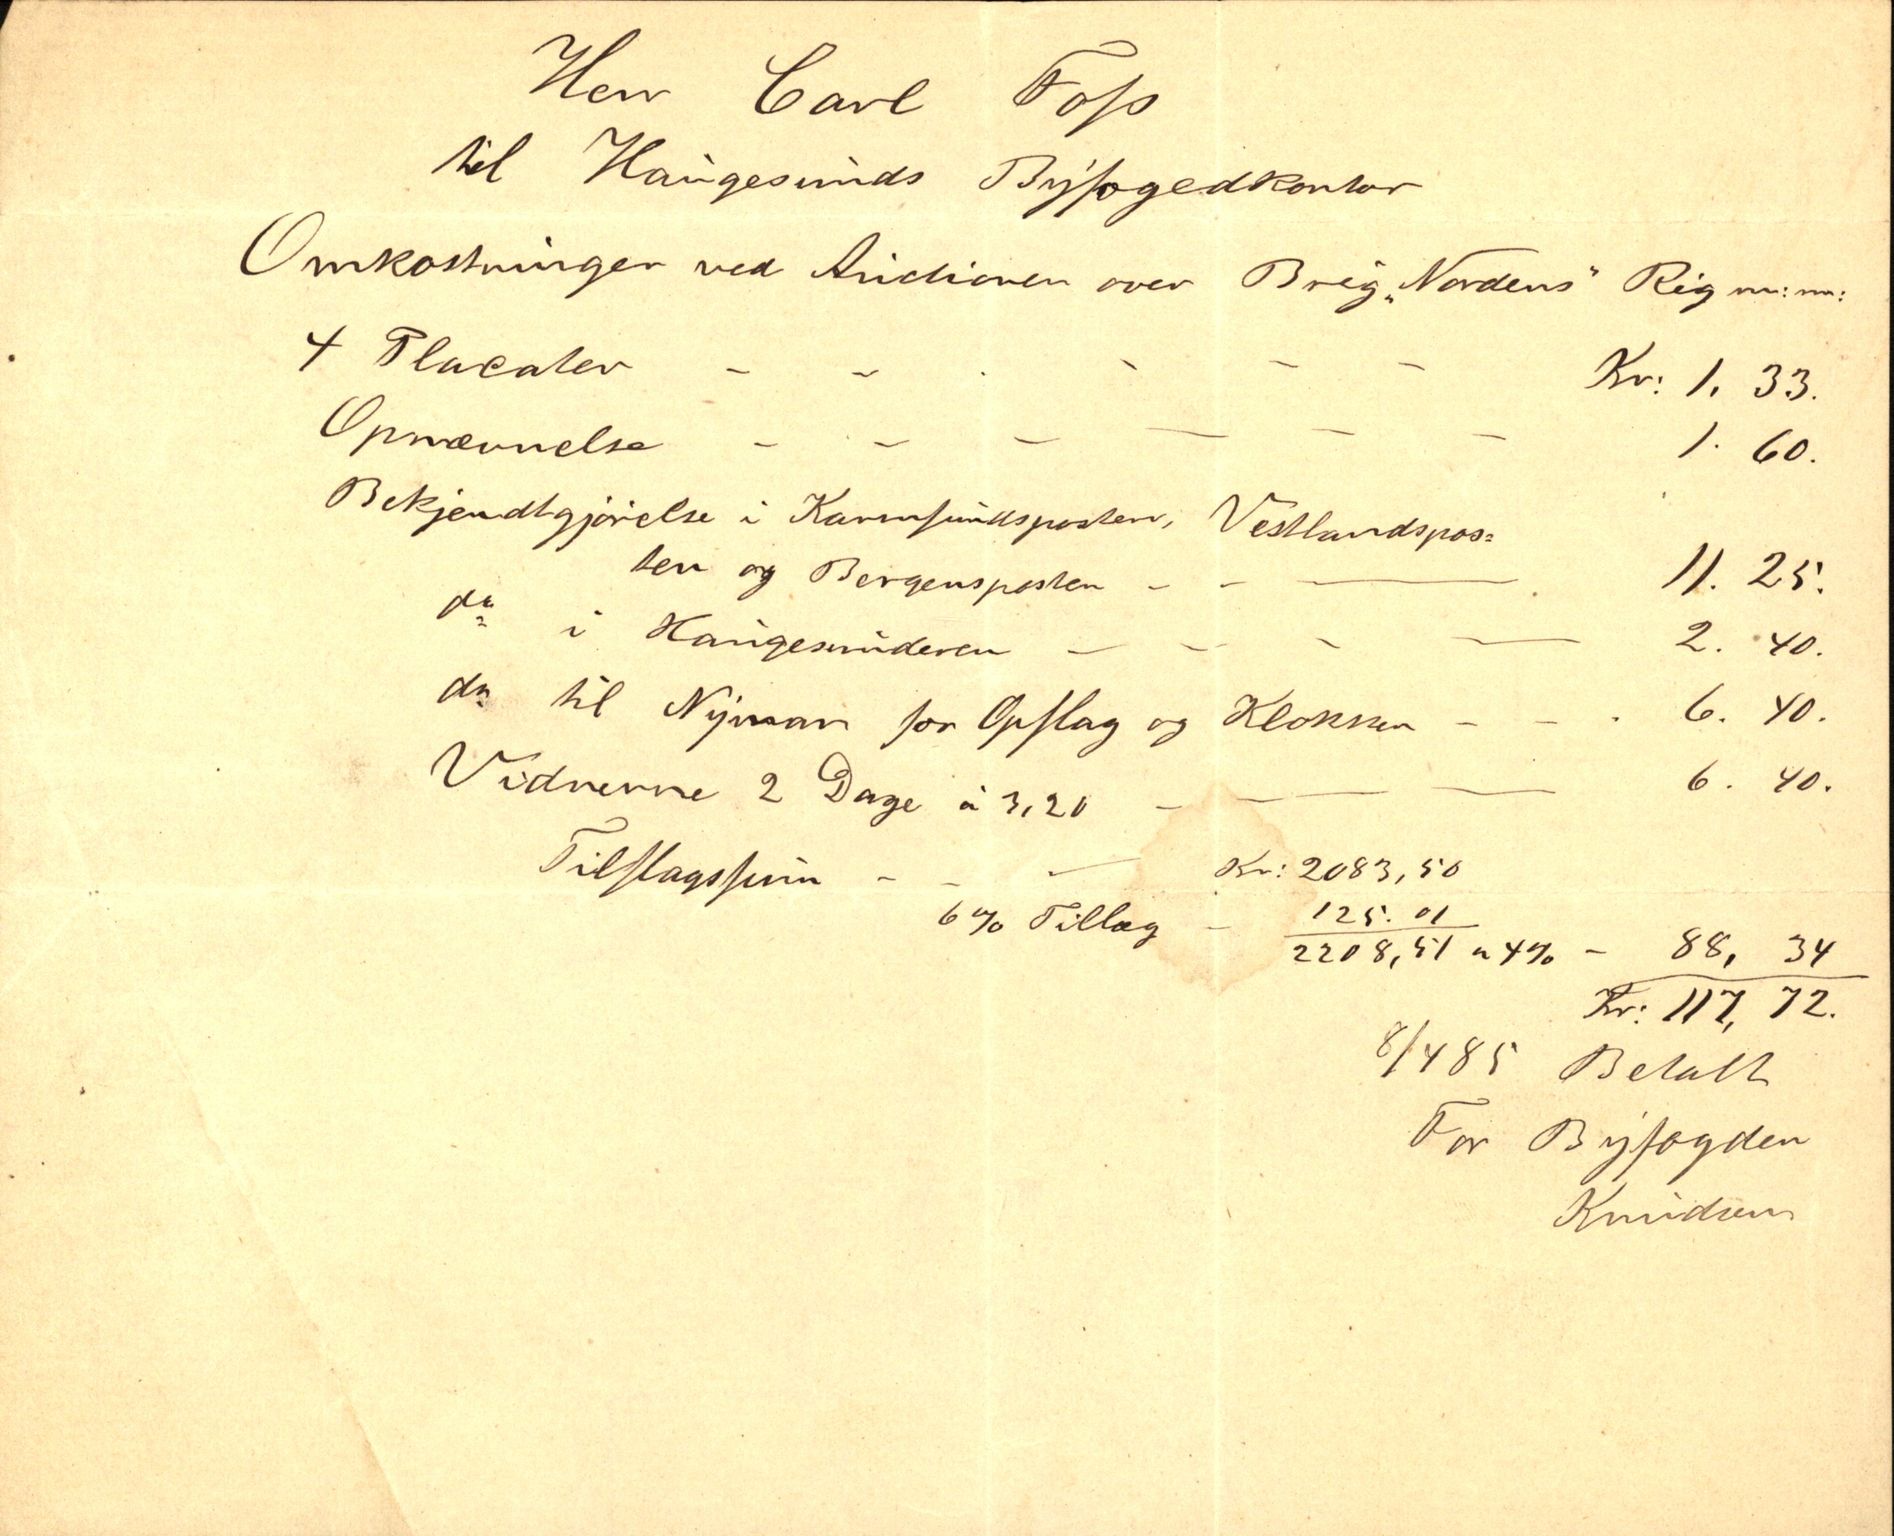 Herr Carl Foss
til Haugesunds Byfogedkontor
Omkostninger ved Auctionen over Brig „Nordens" Rig m: m:
4 Placater - - - - - - Kr: 1. 33.
Opnævnelse - - - - - - 1. 60.
Bekjendtgjørelse i Karmsundsposten, Vestlandspos=
ten og Bergensposten - - - 11. 25.
do i Haugesunderen - - - - 2. 40.
do til Nyman for Opslag og Klokken - - - 6. 40.
Vidnerne 2 Dage á 3,20 - - - - 6. 40.
Tilslagssum - - - Kr: 2083,50
6 % Tillæg - 125. 01
2208,51 a 4% - 88, 34
Kr: 117, 72.
8/4 85 Betalt
For Byfogden
Knudsen